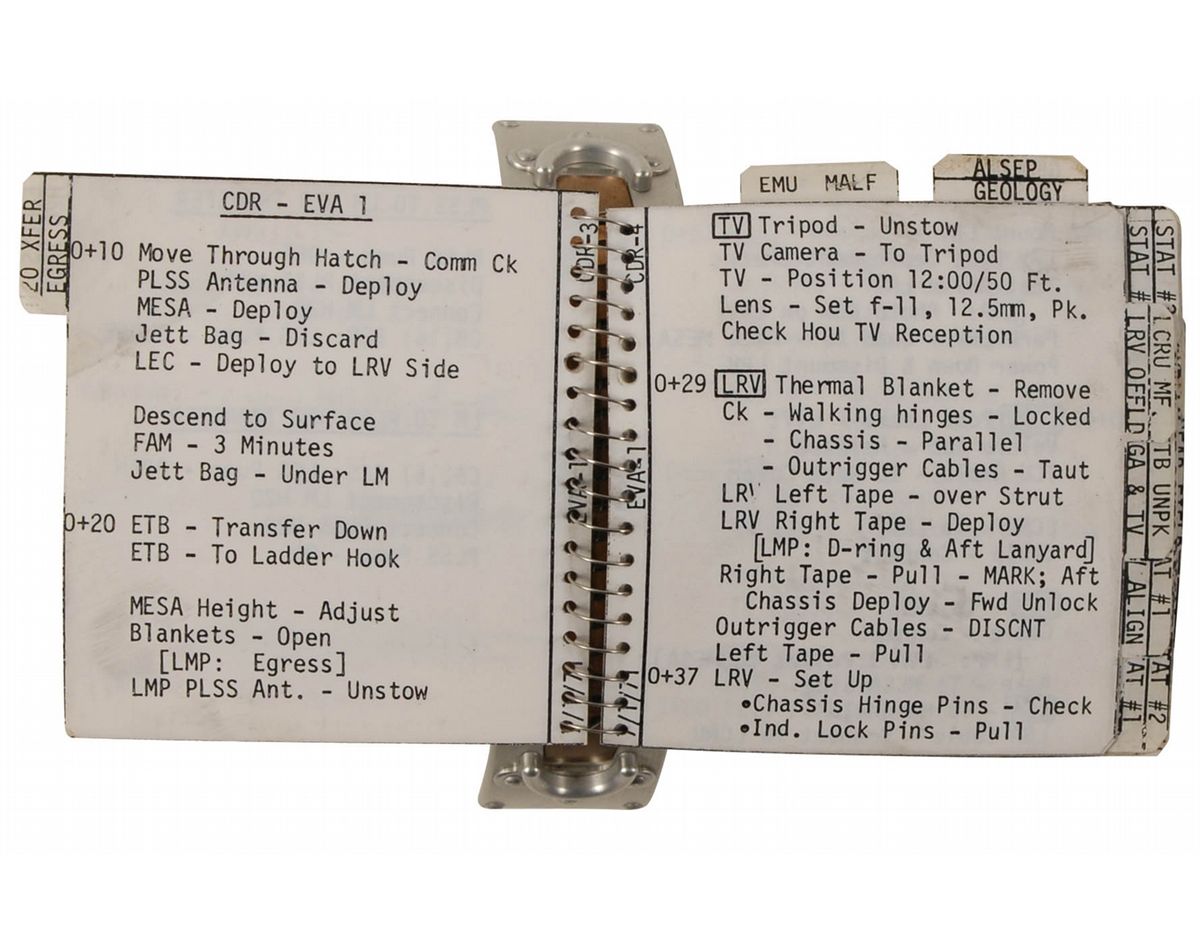 20 XFER
EGRESS
CDR - EVA 1
0+10 Move Through Hatch - Comm Ck
PLSS Antenna - Deploy
MESA - Deploy
Jett Bag - Discard
LEC - Deploy to LRV Side
Descend to Surface
FAM - 3 Minutes
Jett Bag - Under LM
0+20 ETB - Transfer Down
ETB - To Ladder Hook
MESA Height - Adjust
Blankets - Open
[LMP: Egress]
LMP PLSS Ant. - Unstow
CDR-3
EVA-1
CDR-4
EVA-1
EMU MALF
ALSEP
GEOLOGY
TV Tripod - Unstow
TV Camera - To Tripod
TV - Position 12:00/50 Ft.
Lens - Set f-11, 12.5mm, Pk.
Check Hou TV Reception
0+29 LRV Thermal Blanket - Remove
Ck - Walking hinges - Locked
- Chassis - Parallel
- Outrigger Cables - Taut
LRV Left Tape - over Strut
LRV Right Tape - Deploy
[LMP: D-ring & Aft Lanyard]
Right Tape - Pull - MARK; Aft
Chassis Deploy - Fwd Unlock
Outrigger Cables - DISCNT
Left Tape - Pull
0+37 LRV - Set Up
•Chassis Hinge Pins - Check
•Ind. Lock Pins - Pull
STAT #
LRV OFFLD
GA & TV
ALIGN
AT #1
STAT #2
LCRU MF.
TB UNPK
AT #1
AT #2